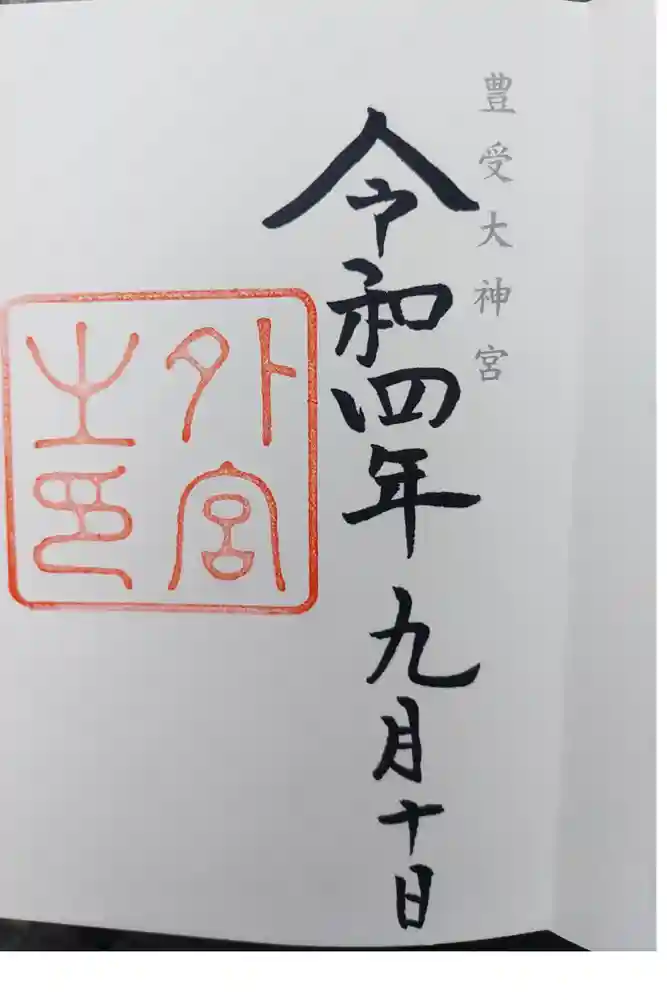 豊受大神宮
令和四年九月十日
外宮之印